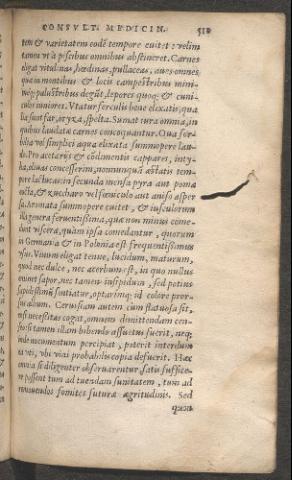 CONSVLT. MEDICIN. 519
tem & varietatem codē tempore euitet: velim
tamen vt à piscibus omnibus abstineret. Carnes
eligat vitulinas, hœdinas, pullaceas, aues omnes
quæ in montibus & locis campestribus mini-
mèq; palustribus degūt, lepores quoq; & cuni-
culos iuniores. Vtatur ferculis bene elixatis; qua
lia sunt far, oryza, spelta. Sumat iura omnia, in
quibus laudatæ carnes concoquantur. Oua sor-
bilia vel simplici aqua elixata summopere lau-
do. Pro acetariis & cōdimentis cappares, inty-
ba, oliuas concesserim, nonnunquā æstatis tem-
pore lactucas: in secunda mensa pyra aut poma
cocta, & zuccharo vel fœniculo aut aniso asper
sa. Aromata summopere euitet, & iusculorum
illa genera feruentissima, quæ non minus come-
dunt viscera, quàm ipsa comedantur, quorum
in Germania & in Polonia est frequentissimus
vsus. Vinum eligat tenue, lucidum, maturum,
quod nec dulce, nec acerbum est, in quo nullus
emineat sapor, nec tamen insipidum, sed potius
sapidissimū sentiatur, optarimq; id colore pror-
sus album. Ceruisiam autem cùm flatuosa sit,
nisi necessitas cogat, omnem dimittendam cen-
seo: si tamen illam bibendo assuetus fuerit, neq;
inde nocumentum percipiat, poterit interdum
ea vti, vbi vini probabilis copia defuerit. Hæc
omnia si diligenter obseruarentur, satis suffice-
re possent tum ad tuendam sanitatem, tum ad
remouendos fomites futuræ ægritudinis. Sed
quia